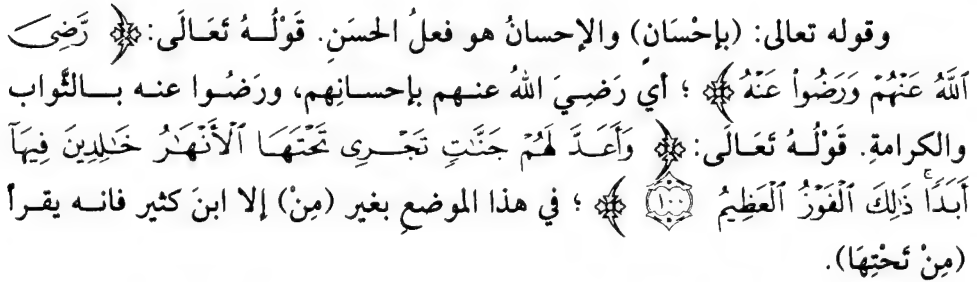 وقوله تعالى: (بإِحْسَانٍ) والإحسانُ هو فعلُ الحسَنِ. قَوْلُـهُ تَعَـالَى: ﴿ رَّضِىَ
ٱللَّهُ عَنْهُمْ وَرَضُوا۟ عَنْهُ ﴾ ؛ أي رَضِـيَ اللهُ عنـهم بإحسانِهم، ورَضُـوا عنـه بـالثَّواب
والكرامةِ. قَوْلُـهُ تَعَـالَى: ﴿ وَأَعَـدَّ لَهُمْ جَنَّـٰتٍ تَجْـرِى تَحْتَهَـا ٱلْأَنْهَـٰرُ خَـٰلِدِينَ فِيهَآ
أَبَدًا ۚ ذَٰلِكَ ٱلْفَوْزُ ٱلْعَظِيمُ ۝١٠٠ ﴾ ؛ في هذا الموضعِ بغير (مِنْ) إلا ابنَ كثير فانـه يقـرأ
(مِنْ تَحْتِهَا).